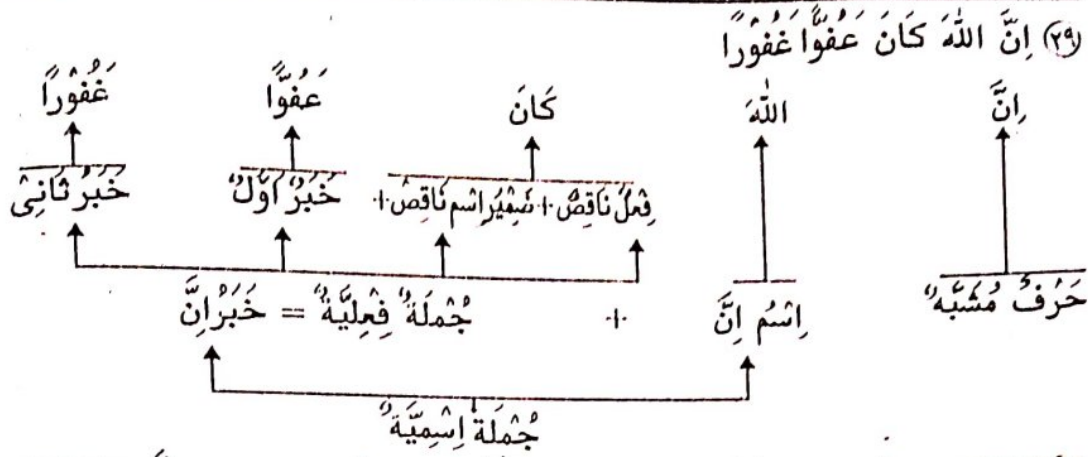 ۲۹ اِنَّ اللّٰهَ كَانَ عَفُوًّا غَفُوْرًا
اِنَّ اللّٰهَ كَانَ عَفُوًّا غَفُوْرًا
حَرْفٌ مُشَبَّهٌ فِعْلٌ نَاقِصٌ + ضَمِيْرُ اِسْم نَاقِصْ + خَبَرُ اَوَّلٌ خَبَرُ ثَانِیْ
اِسْمُ اِنَّ + جُمْلَةٌ فِعْلِيَّةٌ = خَبَرُ اِنَّ
جُمْلَةٌ اِسْمِيَّةٌ